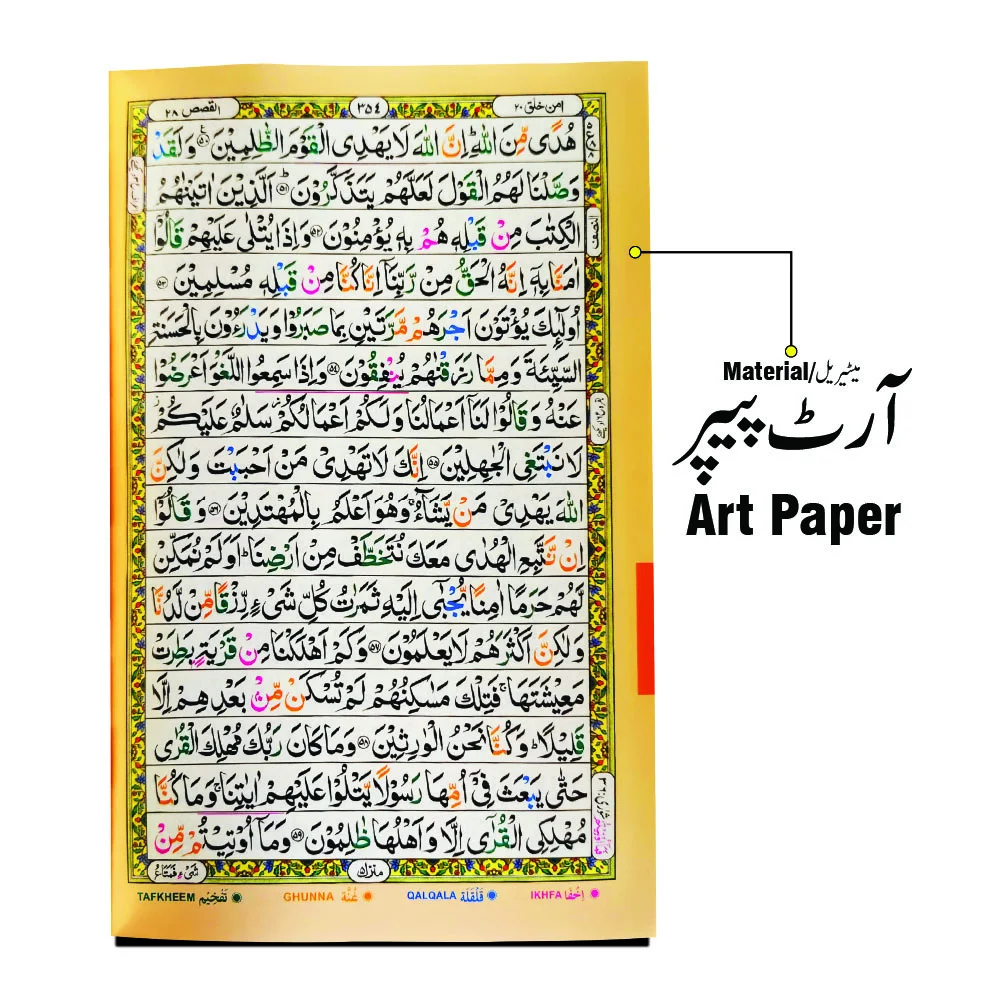 امن خلق ۲۰
۳۵٤
القصص ۲۸
هُدًى مِّنَ اللّٰهِ ؕ اِنَّ اللّٰهَ لَا يَهْدِى الْقَوْمَ الظّٰلِمِيْنَ ۵۰ وَلَقَدْ
وَصَّلْنَا لَهُمُ الْقَوْلَ لَعَلَّهُمْ يَتَذَكَّرُوْنَ ؕ ۵۱ اَلَّذِيْنَ اٰتَيْنٰهُمُ
النصف
الْكِتٰبَ مِنْ قَبْلِهٖ هُمْ بِهٖ يُؤْمِنُوْنَ ۵۲ وَاِذَا يُتْلٰى عَلَيْهِمْ قَالُوْٓا
اٰمَنَّا بِهٖٓ اِنَّهُ الْحَقُّ مِنْ رَّبِّنَآ اِنَّا كُنَّا مِنْ قَبْلِهٖ مُسْلِمِيْنَ ۵۳
اُولٰٓئِكَ يُؤْتَوْنَ اَجْرَهُمْ مَّرَّتَيْنِ بِمَا صَبَرُوْا وَيَدْرَءُوْنَ بِالْحَسَنَةِ
السَّيِّئَةَ وَمِمَّا رَزَقْنٰهُمْ يُنْفِقُوْنَ ۵۴ وَاِذَا سَمِعُوا اللَّغْوَ اَعْرَضُوْا
عَنْهُ وَقَالُوْا لَنَآ اَعْمَالُنَا وَلَكُمْ اَعْمَالُكُمْ سَلٰمٌ عَلَيْكُمْ
لَا نَبْتَغِى الْجٰهِلِيْنَ ۵۵ اِنَّكَ لَا تَهْدِىْ مَنْ اَحْبَبْتَ وَلٰكِنَّ
اللّٰهَ يَهْدِىْ مَنْ يَّشَآءُ ۚ وَهُوَ اَعْلَمُ بِالْمُهْتَدِيْنَ ۵۶ وَقَالُوْٓا
اِنْ نَّتَّبِعِ الْهُدٰى مَعَكَ نُتَخَطَّفْ مِنْ اَرْضِنَا ؕ اَوَلَمْ نُمَكِّنْ
لَّهُمْ حَرَمًا اٰمِنًا يُّجْبٰٓى اِلَيْهِ ثَمَرٰتُ كُلِّ شَىْءٍ رِّزْقًا مِّنْ لَّدُنَّا
وَلٰكِنَّ اَكْثَرَهُمْ لَا يَعْلَمُوْنَ ۵۷ وَكَمْ اَهْلَكْنَا مِنْ قَرْيَةٍۭ بَطِرَتْ
مَعِيْشَتَهَا ۚ فَتِلْكَ مَسٰكِنُهُمْ لَمْ تُسْكَنْ مِّنْۢ بَعْدِهِمْ اِلَّا
قَلِيْلًا ؕ وَكُنَّا نَحْنُ الْوٰرِثِيْنَ ۵۸ وَمَا كَانَ رَبُّكَ مُهْلِكَ الْقُرٰى
حَتّٰى يَبْعَثَ فِىْٓ اُمِّهَا رَسُوْلًا يَّتْلُوْا عَلَيْهِمْ اٰيٰتِنَا ۚ وَمَا كُنَّا
مُهْلِكِى الْقُرٰٓى اِلَّا وَاَهْلُهَا ظٰلِمُوْنَ ۵۹ وَمَآ اُوْتِيْتُمْ مِّنْ
منزل ۵
شَىْءٍ فَمَتَاعُ
TAFKHEEM تَفْخِيْم
GHUNNA غُنَّة
QALQALA قَلْقَلَة
IKHFA اِخْفَا
Material/میٹیریل
آرٹ پیپر
Art Paper